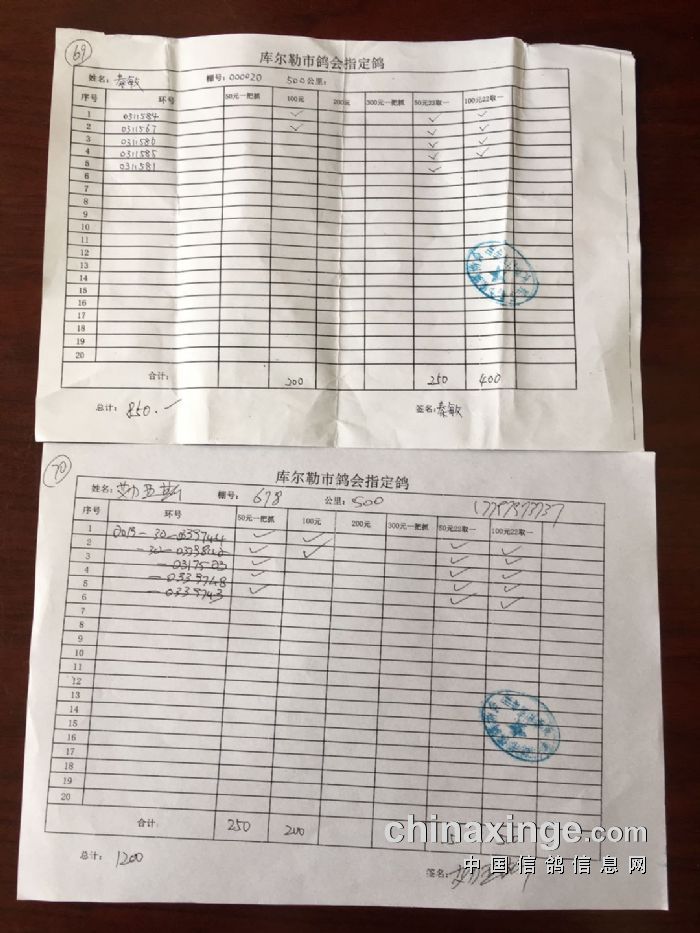 69
库尔勒市鸽会指定鸽
姓名: 秦敏 棚号: 000020 500公里:
序号 环号 50元一把抓 100元 200元 300元一把抓 50元22取一 100元22取一
1 0311584 ✓ ✓ ✓
2 0311567 ✓ ✓ ✓
3 0311580 ✓ ✓
4 0311585 ✓ ✓
5 0311581 ✓
6
7
8
9
10
11
12
13
14
15
16
17
18
19
20
合计: 200 250 400
总计: 850.— 签名: 秦敏
70
库尔勒市鸽会指定鸽
姓名: 棚号: 678 公里: 500
序号 环号 50元一把抓 100元 200元 300元一把抓 50元22取一 100元22取一
1 2015-30-0339744 ✓ ✓
2 ✓ ✓ ✓ ✓
3 ✓ ✓ ✓
4 -0339748 ✓ ✓ ✓
5 -0339743 ✓ ✓ ✓
6 ✓ ✓
7
8
9
10
11
12
13
14
15
16
17
18
19
20
合计 250 200
总计: 1200 签名:
chinaxinge.com
中国信鸽信息网